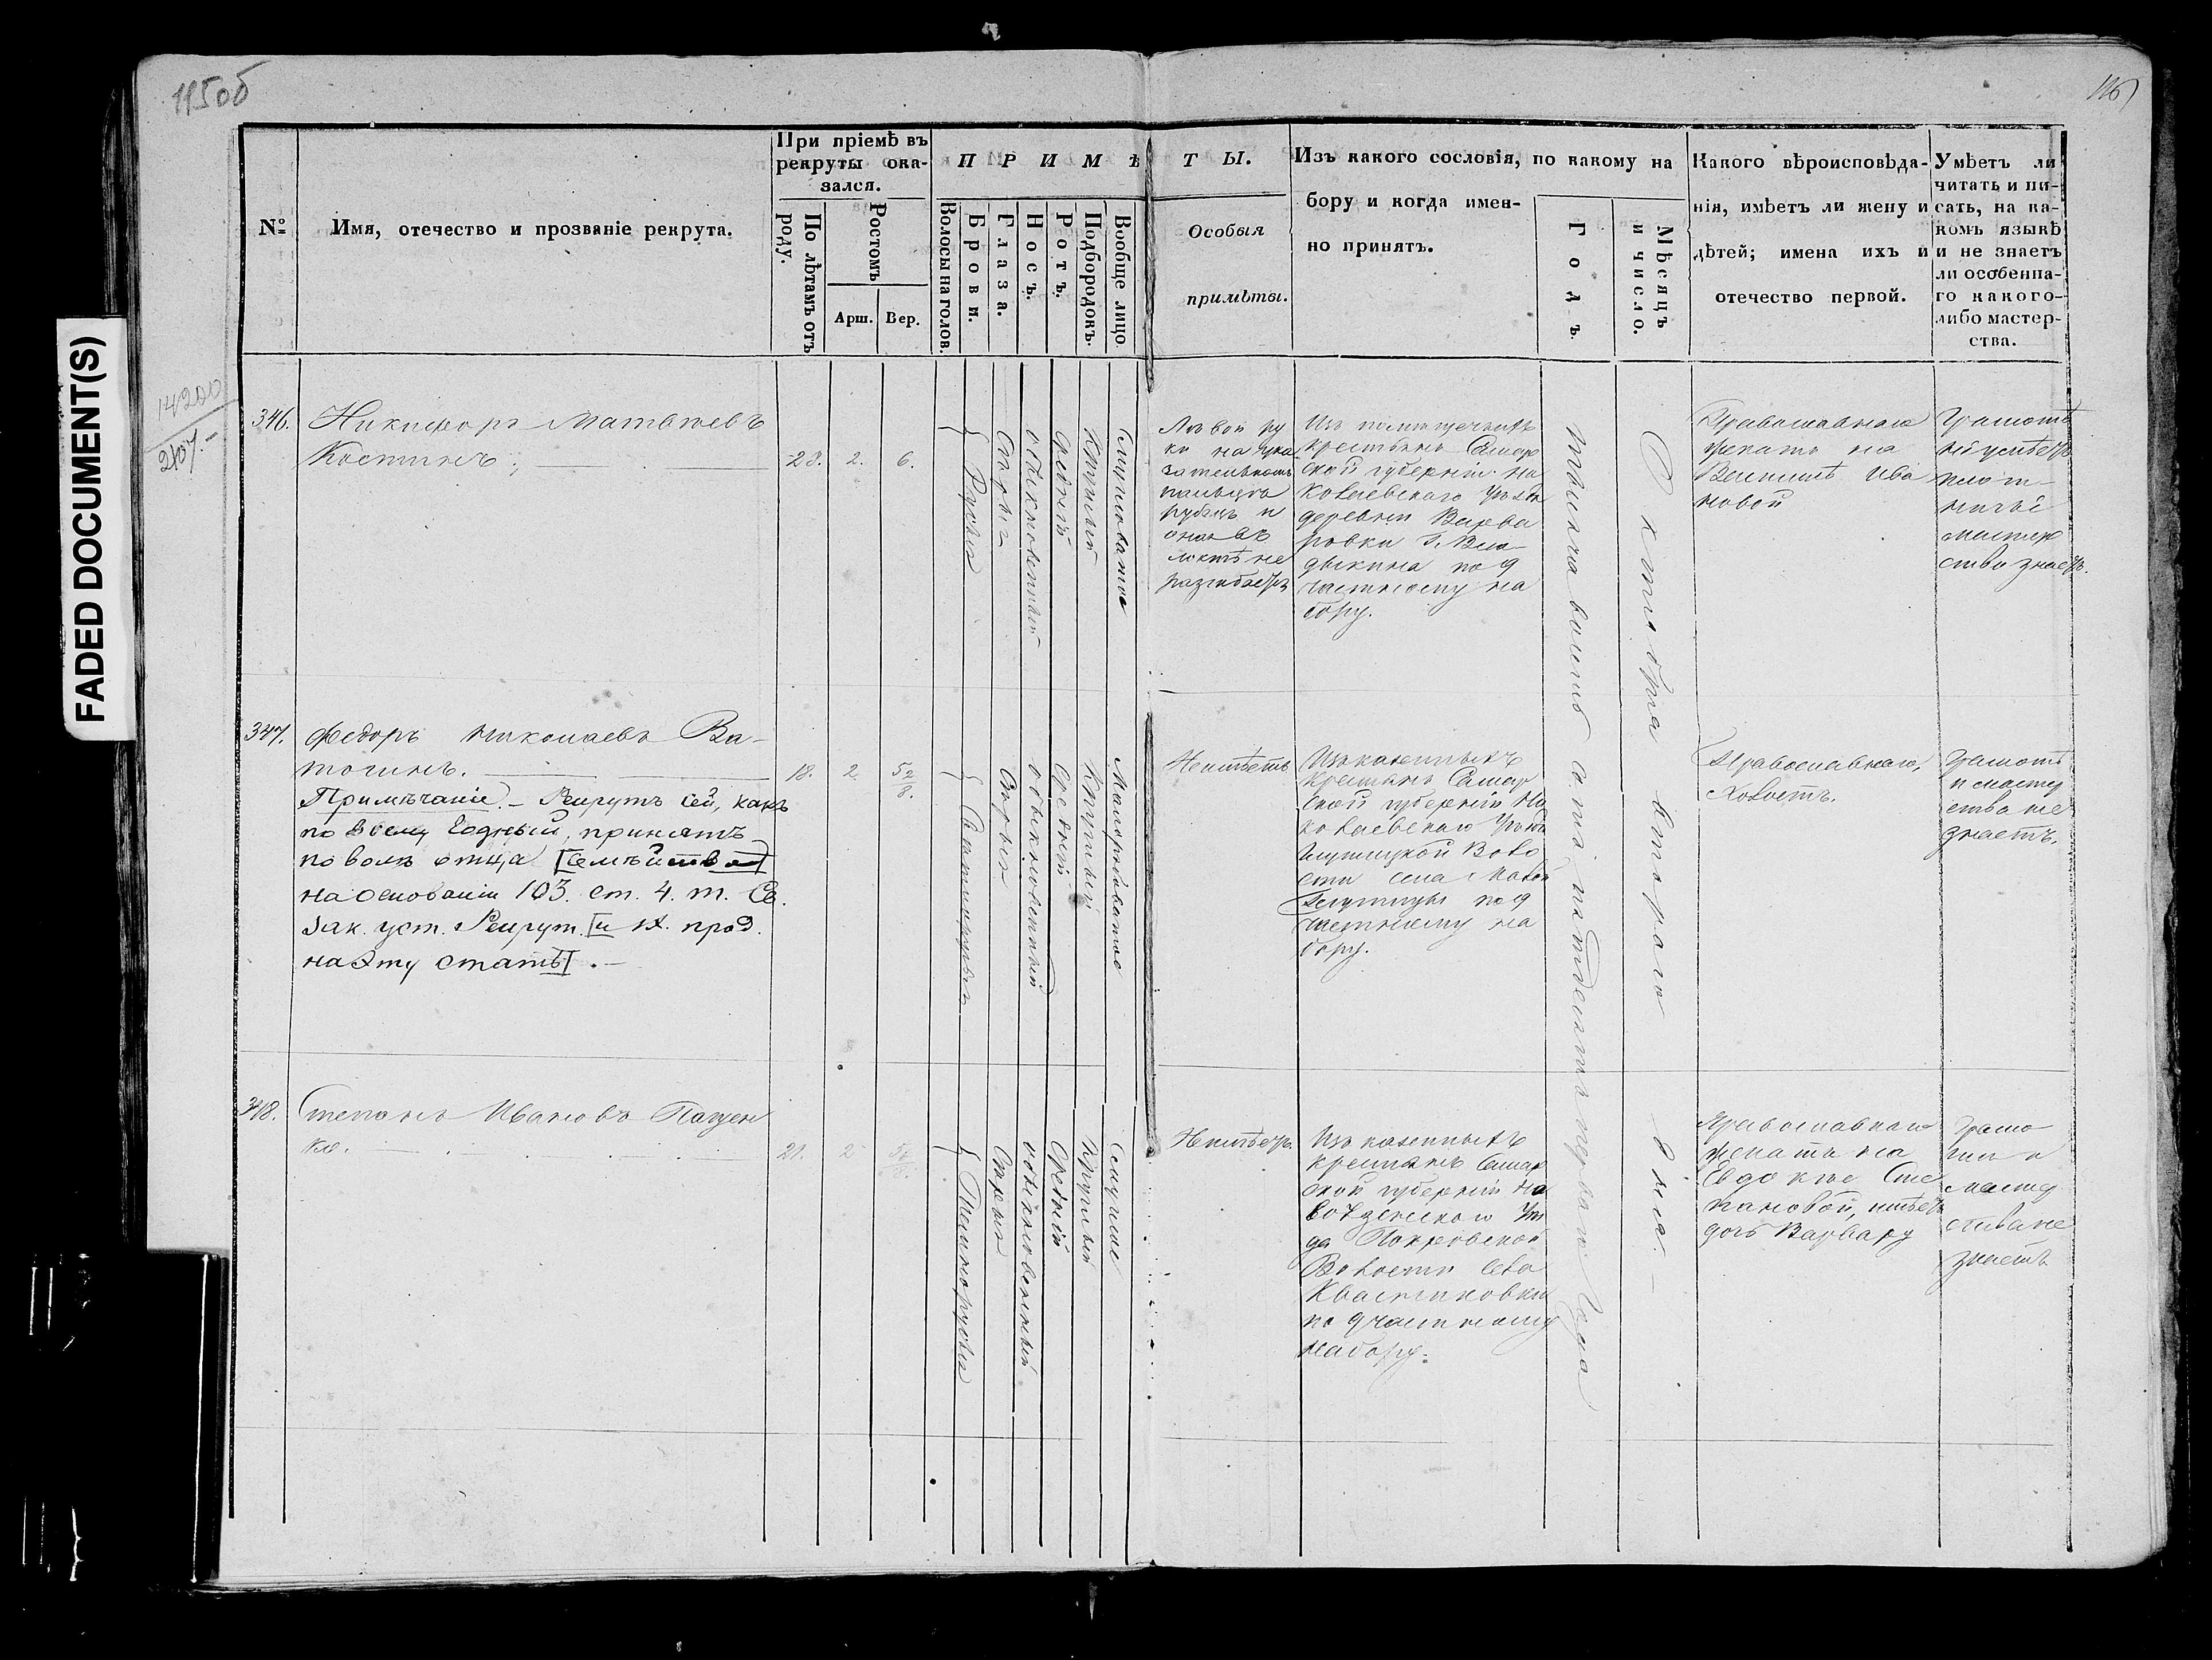 115об
116
FADED DOCUMENT(S)
14200
207.-
№
Имя, отечество и прозваніе рекрута.
При пріемѣ въ
рекруты ока-
зался.
По лѣтамъ отъ
роду.
Ростомъ
Арш.
Вер.
ПРИМѢТЫ.
Волосы на голов.
Брови.
Глаза.
Носъ.
Ротъ.
Подбородокъ.
Вообще лицо.
Особыя
примѣты.
Изъ какого сословія, по какому на
бору и когда имен-
но принятъ.
Годъ.
Мѣсяцъ
и число.
Какого вѣроисповѣда-
нія, имѣетъ ли жену и
дѣтей; имена ихъ и
отечество первой.
Умѣетъ ли
читать и пи-
сать, на ка-
комъ языкѣ
и не знаетъ
ли особенна-
го какого-
либо мастер-
ства.
346.
Никифоръ Матвѣевъ
Костинъ.
23.
2.
6.
Русыя
Сѣрыя
обыкновенный
средній
Круглый
Смугловатое
Лѣвой ру
ки на ука
зательномъ
пальцѣ
рубецъ и
оная въ
локтѣ не
разгибаетъ
Изъ помѣщечьихъ
крестьянъ Самар
ской губерніи Ни
колаевскаго Уѣзда
деревни Варва
ровки Г. Вла
дыкина по 9
частному на
бору.
Тысяча восемь сотъ пятьдесятъ перваго Года
Октября втораго дня
Православнаго
женатъ на
Василисѣ Ива
новой
Грамотѣ
неумѣетъ
плот-
ничье
мастер
ство знаетъ.
347.
Федоръ Николаевъ Ва-
тогинъ.
18.
2.
5 2/8.
Свѣтлорусыя
Сѣрыя
обыкновенный
Средній
Круглый
Малорябоватое
Примѣчаніе. - Рекрутъ сей, какъ
по всему Годный, принятъ
по волѣ отца [семѣйства]
на основаніи 103. ст. 4. т. Св.
Зак. уст. Рекрут. [и IX. прод.
на эту статью]. -
Неимѣетъ
Изъ казенныхъ
крестьянъ Самар
ской губерніи Ни
колаевскаго Уѣзда
Глушицкой Воло
сти села Малой
Глушицы по 9
частному на
бору.
Православнаго,
Холостъ.
Грамотѣ
и мастер
ства не
знаетъ.
348.
Степанъ Ивановъ Пащен
ко.
21.
2
5 /8.
Темнорусыя
Сѣрыя
обыкновенный
Средній
Круглый
Смуглое
Неимѣетъ.
Изъ казенныхъ
крестьянъ Самар
ской губерніи Но
воузенскаго Уѣз
да Покровской
Волости Села
Квасниковки
по 9 частному
набору.
Православнаго
женатъ на
Евдокіе Сте
пановой, имѣетъ
дочь Варвару
Грамо
ты и
мастер
ства не
знаетъ